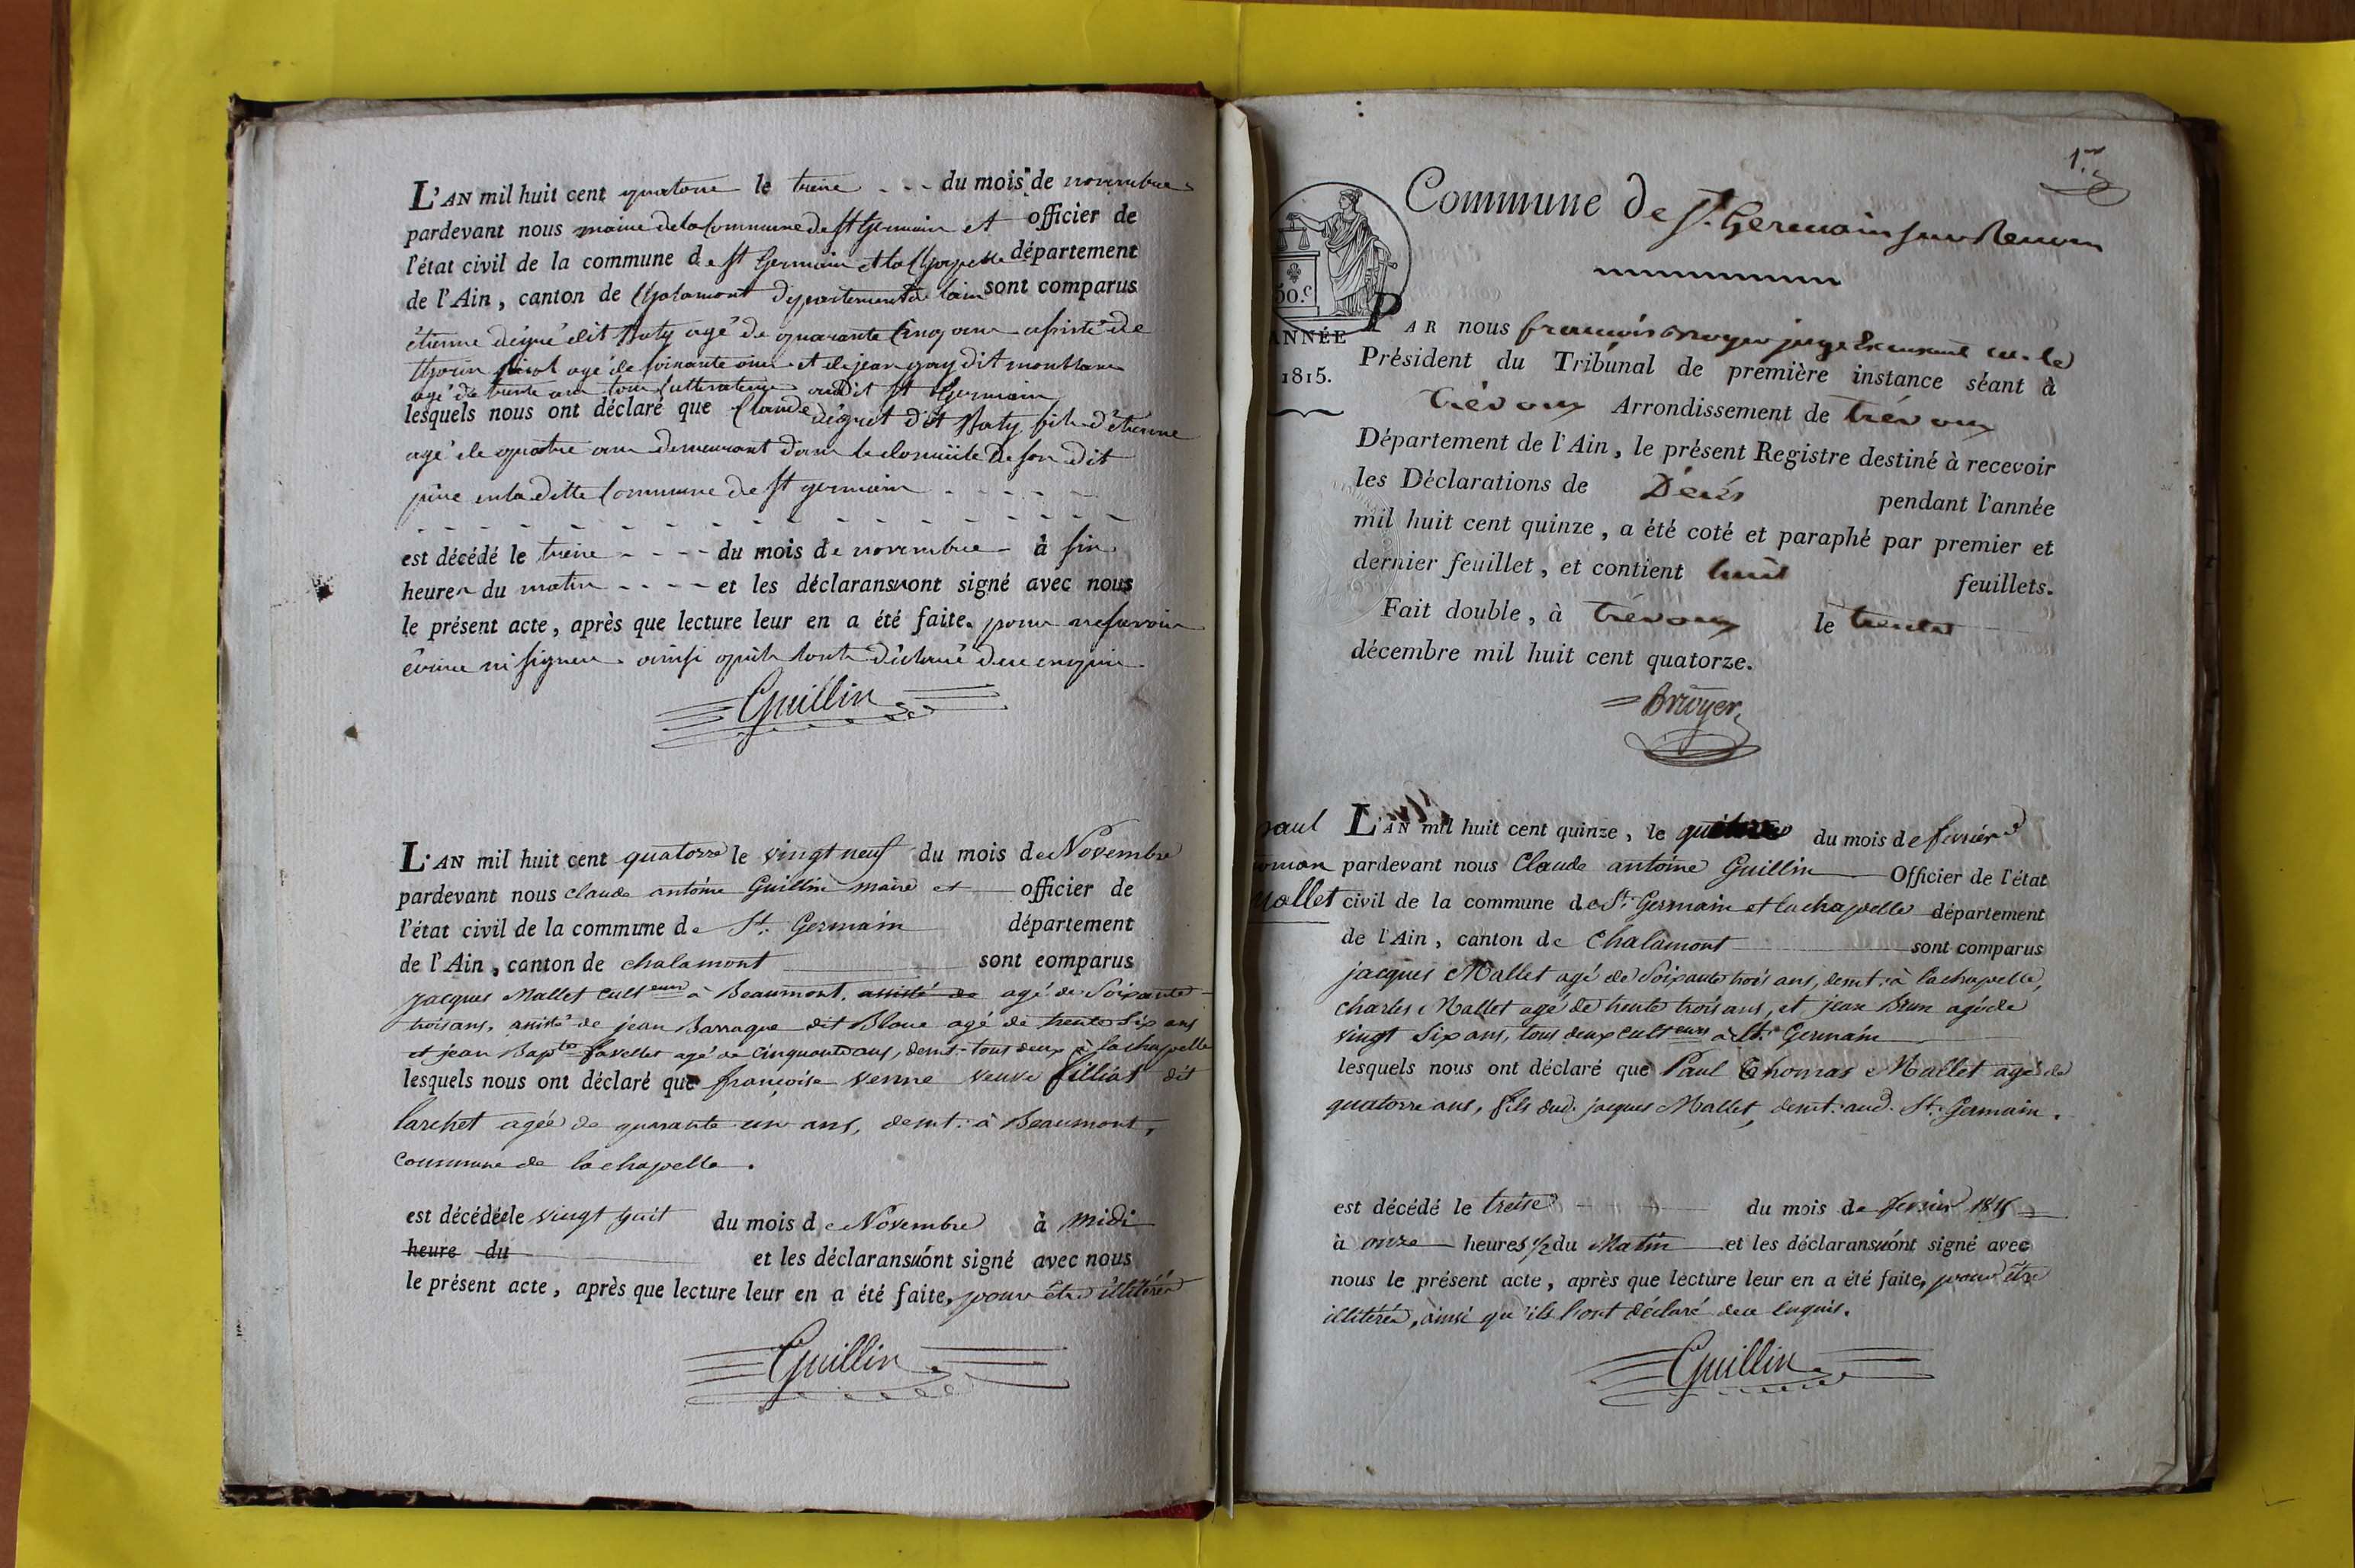 L'AN mil huit cent quatorse le treise - - - du mois de novembre
pardevant nous maire de la Commune de st Germain et officier de
l'état civil de la commune de st Germain et la Chapelle département
de l'Ain, canton de Chalamont département de lain sont comparus
étienne dégré dit Baty agé de quarante Cinq ans assisté de
agé de soixante ans et de jean gay dit montblanc
agé de trente ans tous Cultivateurs audit st Germain
lesquels nous ont déclaré que Claude dégret dit Baty fils d'étienne
agé de quatre ans demeurant dans le domicile de son dit
père en la ditte Commune de st germain - - - - -
est décédé le treise - - - - du mois de novembre - à six
heures du matin - - - - et les déclarans n'ont signé avec nous
le présent acte, après que lecture leur en a été faite. pour ne savoir
écrire ni signer. ainsi qu'ils l'ont déclaré de ce enquis.
Guillin
L'AN mil huit cent quatorze le vingt neuf du mois de Novembre
pardevant nous claude antoine Guillin maire et officier de
l'état civil de la commune de St. Germain département
de l'Ain, canton de chalamont sont comparus
jacques Mallet cult.eur à Beaumont, assisté de agé de Soixante
trois ans, assisté de jean Barraque dit Blanc agé de trente six ans
et jean Bap.te favellet agé de cinquante ans, demt. tous deux à la chapelle
lesquels nous ont déclaré que françoise venne veuve filliat dit
larchet agée de quarante un ans, demt. à Beaumont,
Commune de la chapelle.
est décédée le vingt huit du mois de Novembre à midi
heure du et les déclarans n'ont signé avec nous
le présent acte, après que lecture leur en a été faite, pour être illitérés
Guillin
1er
Commune de St. Germain sur Renom
50.c
ANNÉE
1815.
PAR nous françois Bruyer juge Excusant M. le
Président du Tribunal de première instance séant à
trévoux Arrondissement de trévoux
Département de l'Ain, le présent Registre destiné à recevoir
les Déclarations de Décès pendant l'année
mil huit cent quinze, a été coté et paraphé par premier et
dernier feuillet, et contient huit feuillets.
Fait double, à trévoux le trente
décembre mil huit cent quatorze.
Bruyer
paul
tomas
Mallet
L'AN mil huit cent quinze, le du mois de février
pardevant nous Claude antoine Guillin Officier de l'état
civil de la commune de St. Germain et la chapelle département
de l'Ain, canton de Chalamont sont comparus
jacques Mallet agé de Soixante trois ans, demt. à la chapelle,
charles Mallet agé de trente trois ans, et jean Brun agé de
vingt Six ans, tous deux cult.eurs à St. Germain
lesquels nous ont déclaré que Paul Thomas Mallet agé de
quatorze ans, fils dud. jacques Mallet, demt. aud. St. Germain.
est décédé le treise du mois de fevrier 1815
à onze heures 1/2 du Matin et les déclarans n'ont signé avec
nous le présent acte, après que lecture leur en a été faite, pour être
illitérés, ainsi qu'ils l'ont déclaré de ce enquis.
Guillin